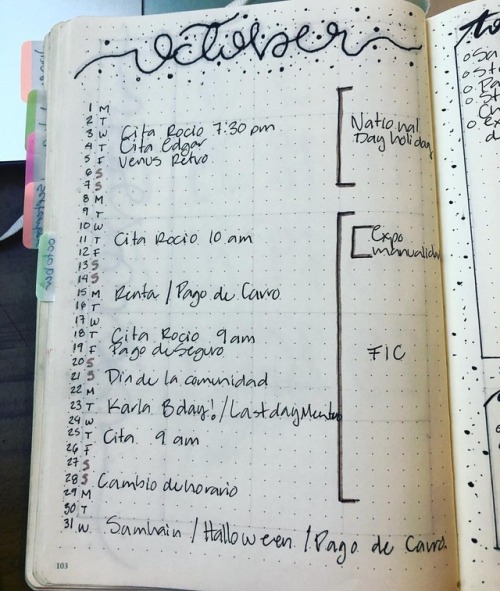 october
1 M
2 T
3 W Cita Rocio 7:30 pm
4 T Cita Edgar
5 F Venus Retro
6 S
7 S
8 M
9 T
10 W
11 T Cita Rocio 10 am
12 F
13 S
14 S
15 M Renta / Pago de Carro
16 T
17 W
18 T Cita Rocio 9 am
19 F Pago de Seguro
20 S
21 S Dia de la comunidad
22 M
23 T Karla Bday! / Last day
24 W
25 T Cita 9 am
26 F
27 S
28 S Cambio de horario
29 M
30 T
31 W Samhain / Halloween / Pago de Carro
National
Day holiday
Expo
manualidad
FIC
103